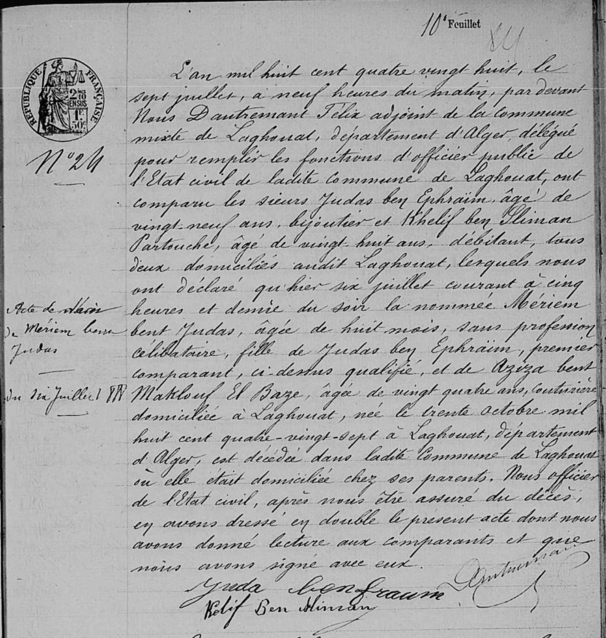 10e Feuillet
84
RÉPUBLIQUE FRANÇAISE
No 24
L'an mil huit cent quatre vingt huit, le
sept juillet, à neuf heures du matin, par devant
Nous Dautremant Félix adjoint de la commune
mixte de Laghouat, département d'Alger, délégué
pour remplir les fonctions d'officier public de
l'Etat civil de ladite commune de Laghouat, ont
comparu les sieurs Judas ben Ephraïm, âgé de
vingt neuf ans, bijoutier et Khelif ben Sliman
Partouche, âgé de vingt huit ans, débitant, tous
deux domiciliés audit Laghouat, lesquels nous
ont déclaré qu'hier six juillet courant à cinq
heures et demie du soir la nommée Mériem
bent Judas, âgée de huit mois, sans profession
célibataire, fille de Judas ben Ephraïm, premier
comparant, ci-dessus qualifié, et de Aziza bent
Maklouf El Baze, âgée de vingt quatre ans, couturière
domiciliée à Laghouat, née le trente octobre mil
huit cent quatre-vingt-sept à Laghouat, département
d'Alger, est décédée dans ladite Commune de Laghouat
où elle était domiciliée chez ses parents. Nous officier
de l'Etat civil, après nous être assuré du décès,
en avons dressé en double le présent acte dont nous
avons donné lecture aux comparants et que
nous avons signé avec eux.
Acte de
de Meriem
Judas
Du six Juillet 188
Juda ben
Kelif Ben